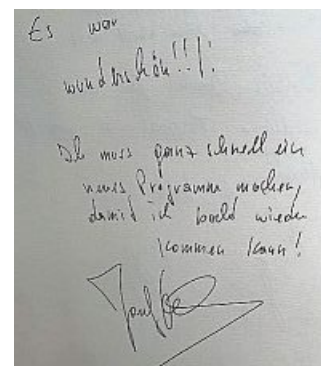 Es war
wunderschön!!!
Ich muss ganz schnell ein
neues Programm machen,
damit ich bald wieder
kommen kann!